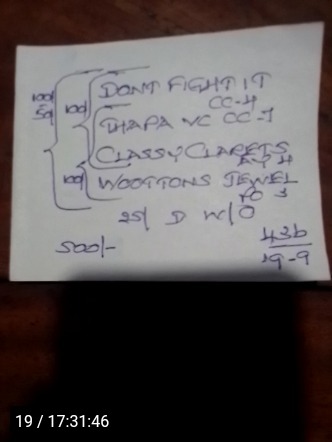 100 DONT FIGHT IT
50 100 CC-4
THAPA VC CC-1
CLASSY CLARETS
100 AY 4
WOOTTONS JEWEL
PO 3
25/ D W/O
500/- 436
19-9
19 / 17:31:46